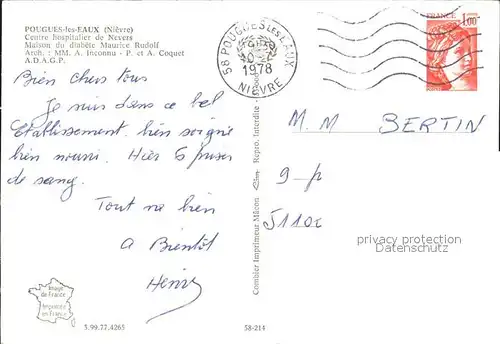 POUGUES-les-EAUX (Nièvre)
Centre hospitalier de Nevers
Maison du diabète Maurice Rudolf
Arch. : MM. A. Inconnu - P. et A. Coquet
A.D.A.G.P.
58 POUGUES LES EAUX
1978
NIÈVRE
FRANCE
1,00
Bien chers tous
Je suis dans ce bel
Etablissement bien soigné
bien nourri. Hier 6 prises
de sang.
Tout va bien
A Bientôt
Henri
M.M BERTIN
9-p
51100
privacy protection
oldthing.de
Combier Imprimeur Mâcon
Repro. Interdite
Image
de France
Imprimée
en France
3.99.77.4265
58-214